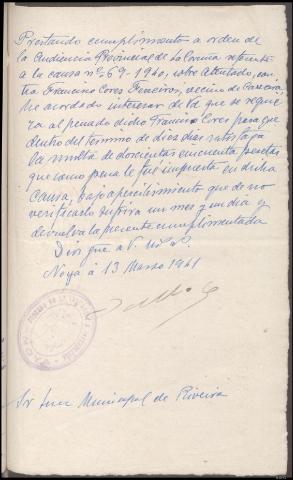 Prestando cumplimiento a orden de
la Audiencia Provincial de La Coruña referente
a la causa nº 69-1940, sobre Atentado, con
tra Francisco Cores Ferreiros, vecino de
he acordado interesar de Vd que se requie
ra al penado dicho Francisco Cores para que
dentro del termino de diez dias satisfaga
la multa de doscientas cincuenta pesetas
que como pena le fué impuesta en dicha
causa, bajo apercibimiento que de no
verificarlo sufrira un mes y un dia y
devuelva la presente cumplimentada
Dios gue a V. m. a.
Noya á 13 Marzo 1941
Sr Juez Municipal de Riveira